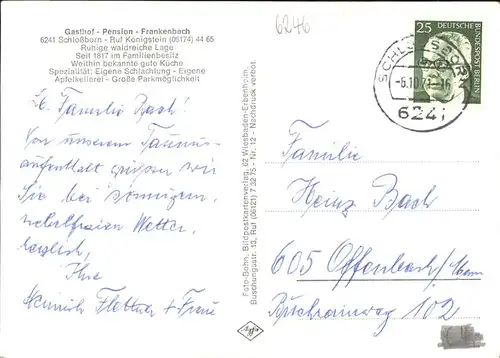 Gasthof - Pension - Frankenbach
6241 Schloßborn - Ruf Königstein (06174) 44 65
Ruhige waldreiche Lage
Seit 1817 im Familienbesitz
Weithin bekannte gute Küche
Spezialität: Eigene Schlachtung - Eigene
Apfelkelterei - Große Parkmöglichkeit
Lb. Familie Bach!
Von unserem Taunus-
aufenthalt grüßen wir
Sie bei sonnigem,
nebelfreien Wetter,
herzlich,
Ihre
Heinrich Flettner + Frau
Foto-Behn, Bildpostkartenverlag, 62 Wiesbaden-Erbenheim,
Buschungsstr. 13, Ruf (06121) 7 32 75 - Nr. 12 - Nachdruck verboten
Agfa
6246
25
DEUTSCHE
BUNDESPOST
BERLIN
SCHLOSSBORN
6241
Familie
Heinz Bach
605 Offenbach/Main
Buchrainweg 102